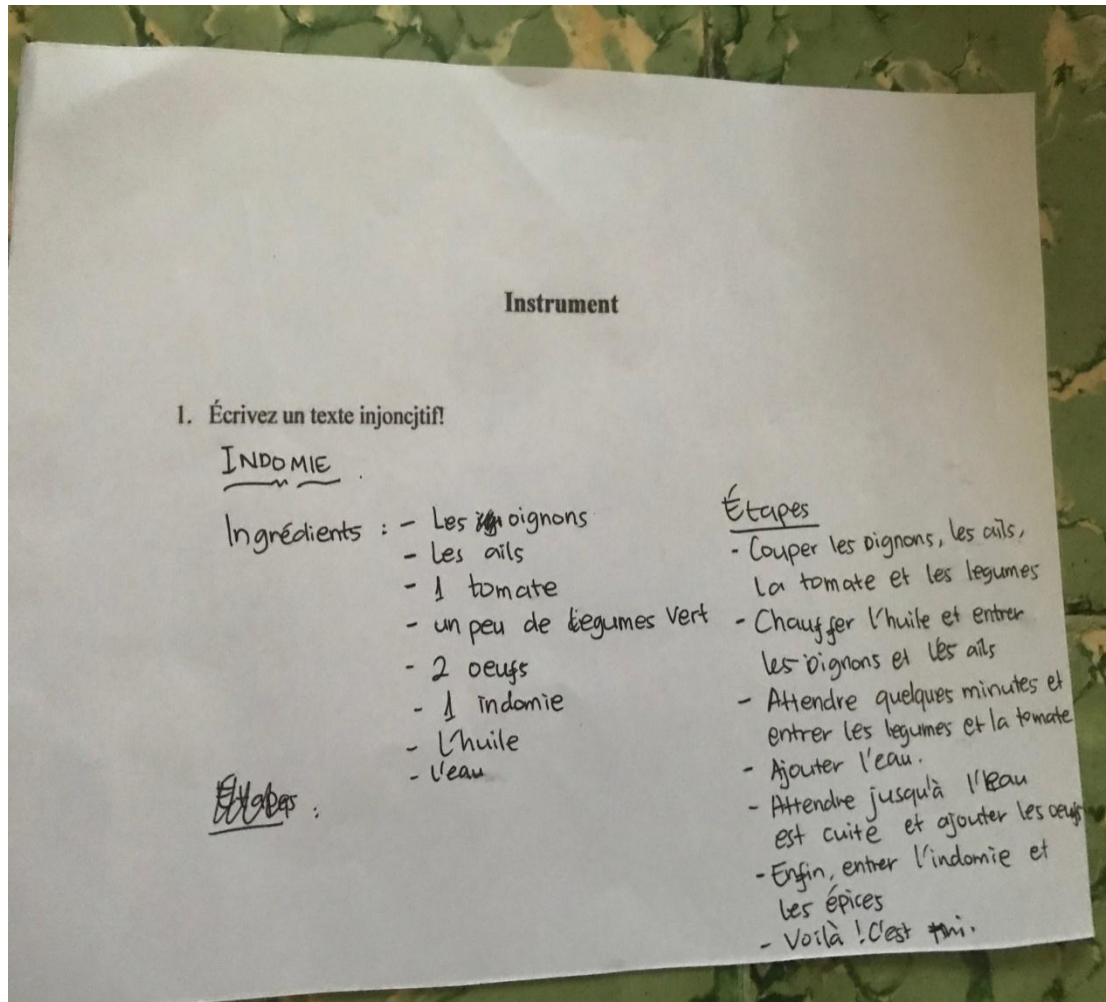 Instrument
1. Écrivez un texte injoncjtif!
INDOMIE
Ingrédients : - Les oignons
- Les ails
- 1 tomate
- un peu de legumes vert
- 2 oeufs
- 1 indomie
- L'huile
- L'eau
Étapes
- Couper les oignons, les ails,
la tomate et les legumes
- Chauffer l'huile et entrer
les oignons et les ails
- Attendre quelques minutes et
entrer les legumes et la tomate
- Ajouter l'eau.
- Attendre jusqu'à l'eau
est cuite et ajouter les oeufs
- Enfin, entrer l'indomie et
les épices
- Voilà ! C'est fini.